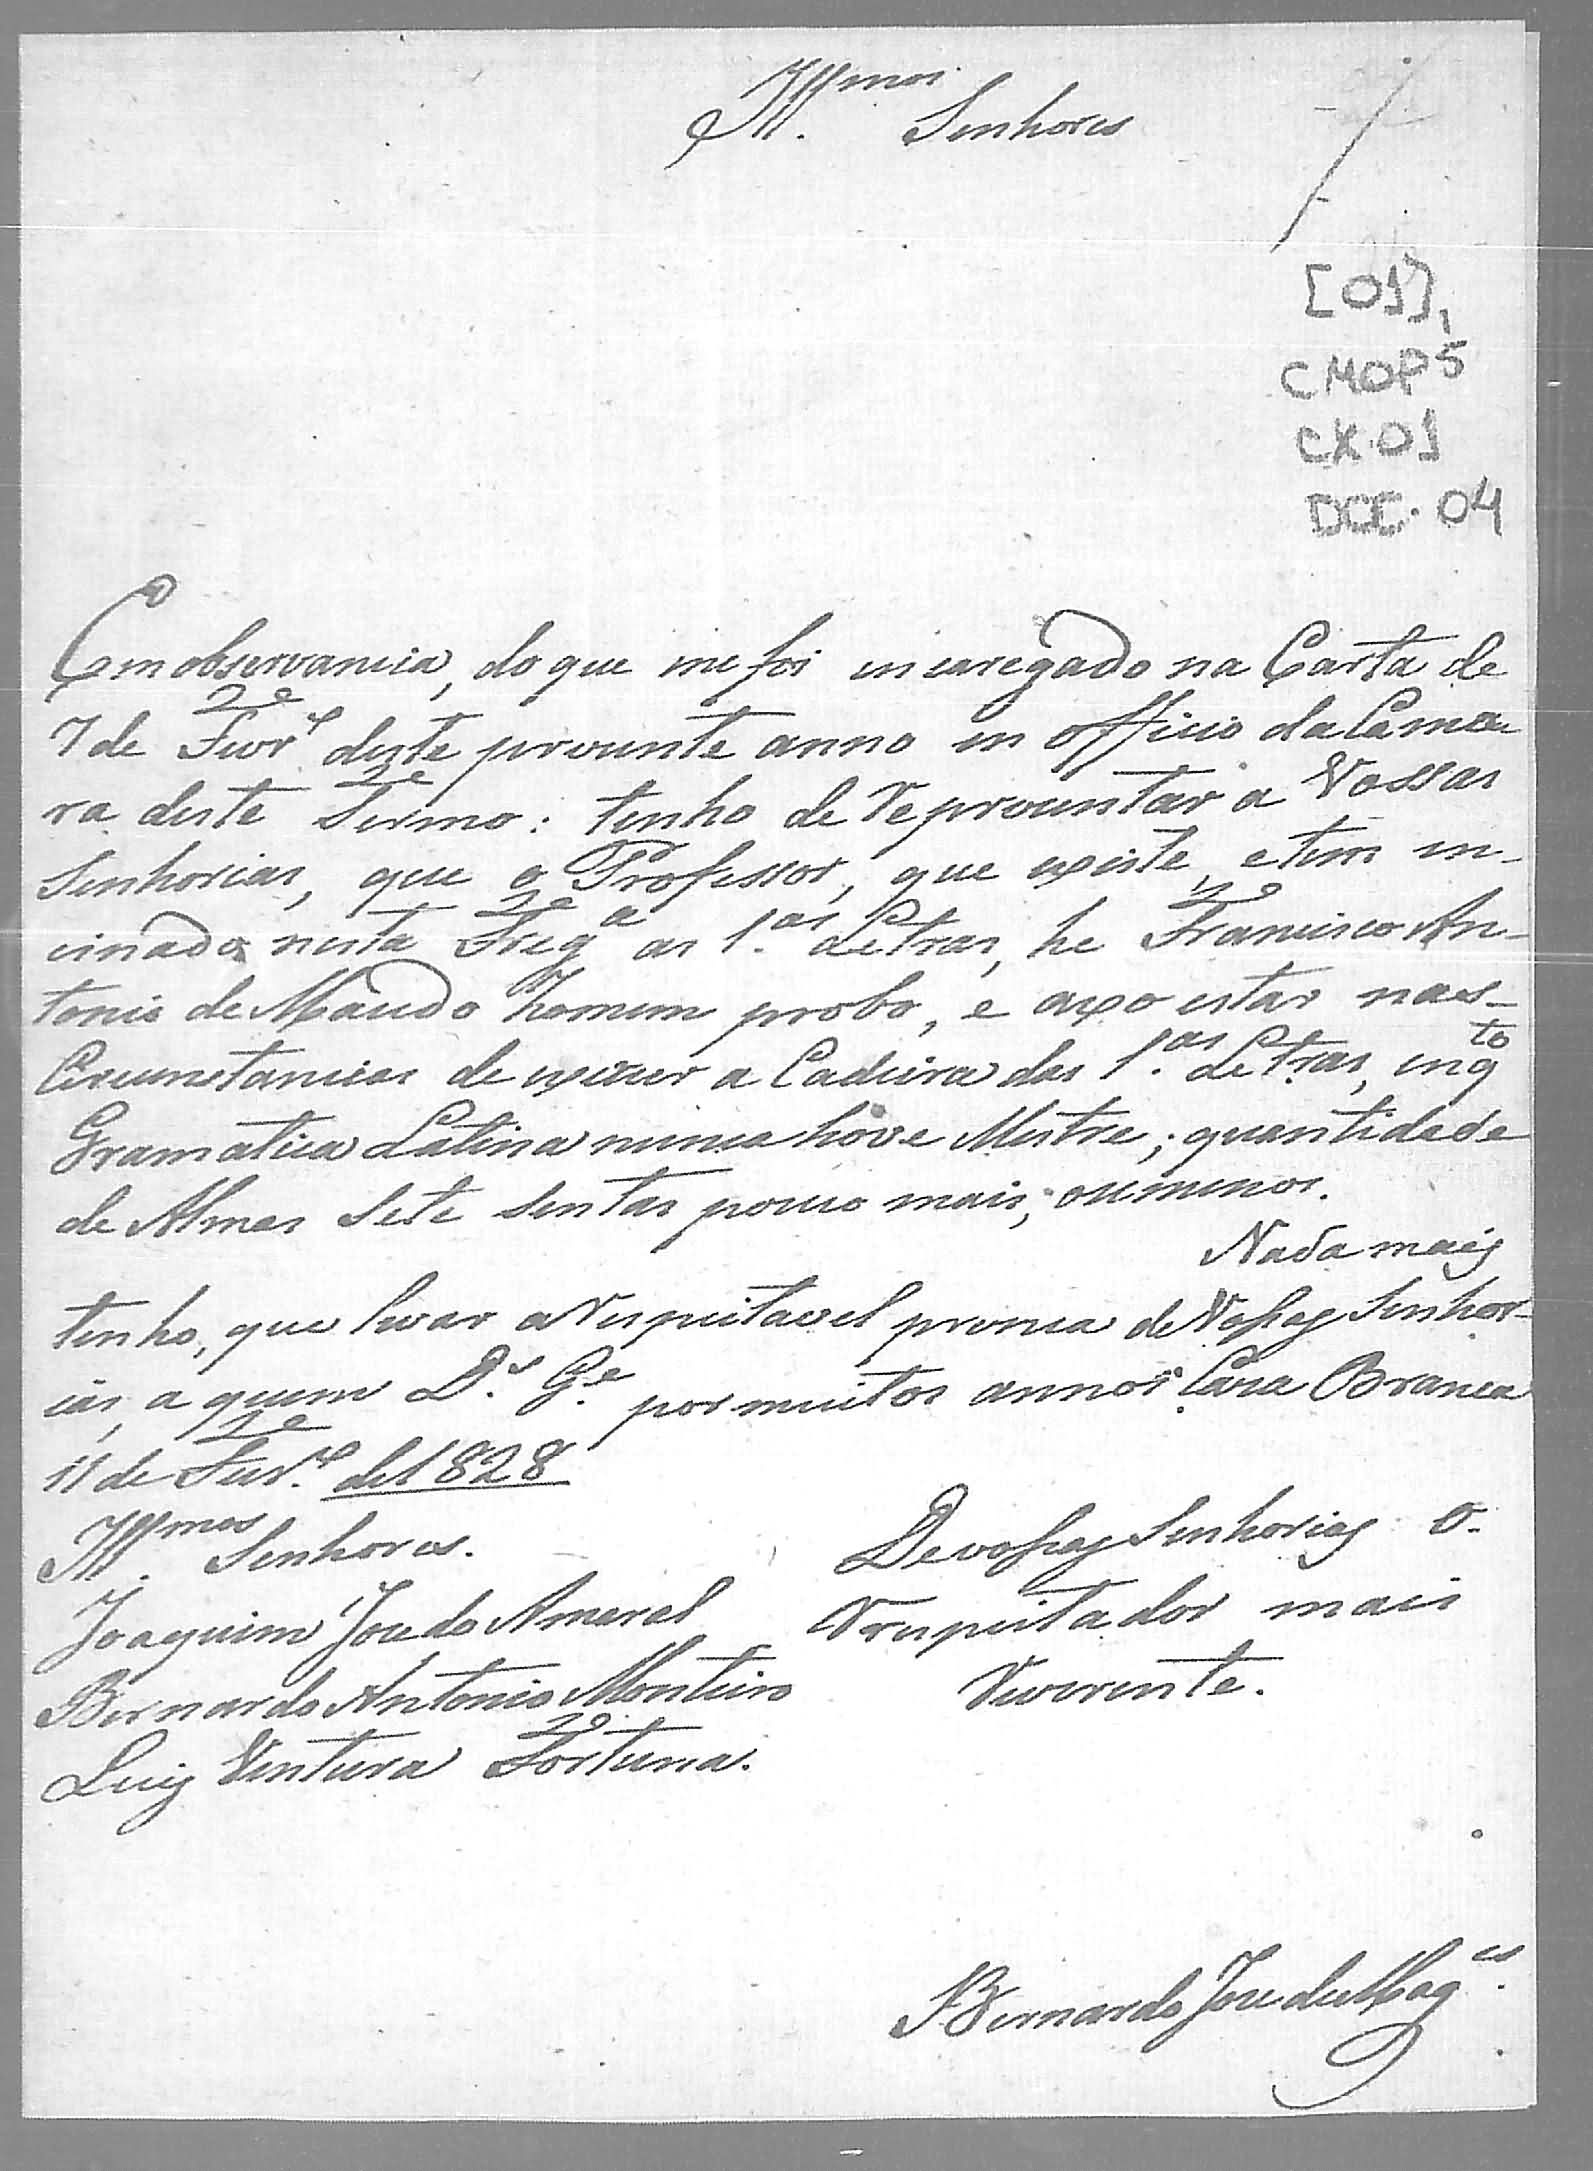 Ill.mos Senhores
[01],
CMOPS
CX.01
DOC. 04
Em observancia, do que me foi incaregado na Carta de
7 de Fevr.º deste prezente anno em officio da Cama
ra deste Termo: tenho de Reprezentar a Vossas
Senhorias, que o Professor, que existe, e tem in-
cinado nesta Freg.a as 1.as Letras, he Francisco An-
tonio de Macedo homem probo, e axo estar nas
Circunstancias de exzercer a Cadeira das 1.as Letras, em q.to
Gramatica Latina nunca hove Mestre; quantidade
de Almas Sete Sentas pouco mais, ou menos.
Nada mais
tenho, que levar a Respeitavel prezença de Vossas Senhor-
ias, a quem D.s G.e por muitos annos Caza Branca
11 de Fevr.º de 1828
Ill.mos Senhores.
Joaquim Joze do Amaral
Bernardo Antonio Monteiro
Luiz Ventura Fortuna.
De vossas Senhorias o
Respeitador mais
Reverente.
Bernardo Joze de Mag.es